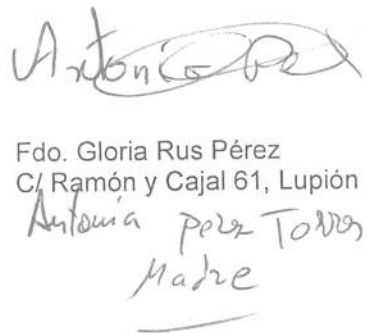 Antonia Pe
Fdo. Gloria Rus Pérez
C/ Ramón y Cajal 61, Lupión
Antonia Perez Torres
Madre